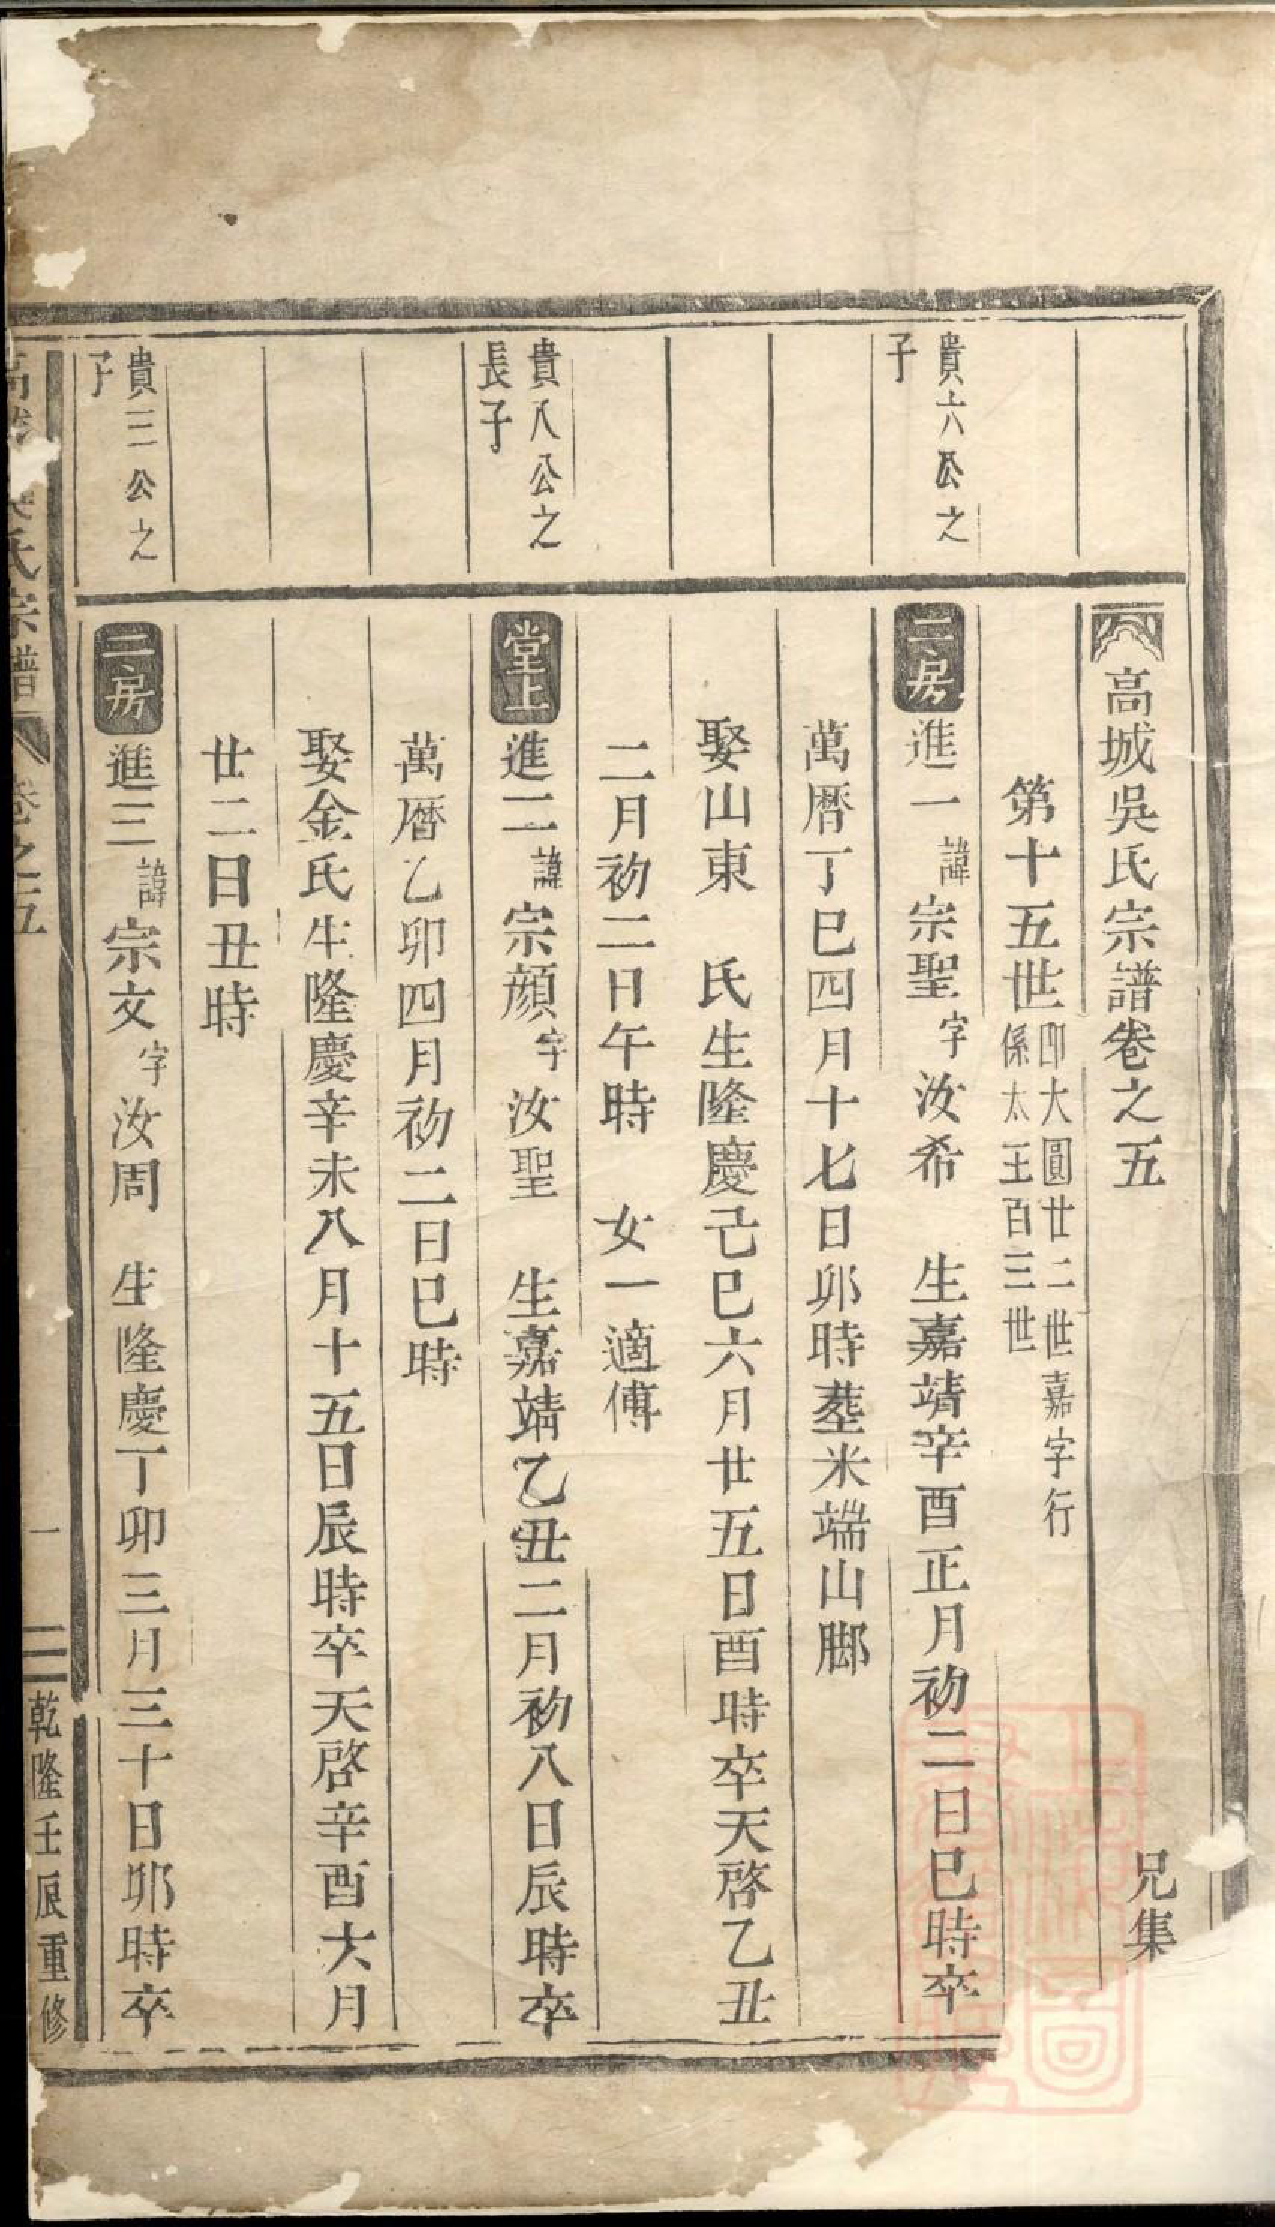 高城吳氏宗譜卷之五 兄集
第十五世 即大圓廿二世嘉字行
係太王百三世
貴六公之
子
二房 進一 諱 宗聖 字 汝希 生嘉靖辛酉正月初二日巳時卒
萬曆丁巳四月十七日卯時葬米端山脚
娶山東 氏生隆慶己巳六月廿五日酉時卒天啓乙丑
二月初二日午時 女一適傅
貴八公之
長子
堂上 進二 諱 宗顏 字 汝聖 生嘉靖乙丑二月初八日辰時卒
萬曆乙卯四月初二日巳時
娶金氏生隆慶辛未八月十五日辰時卒天啓辛酉六月
廿二日丑時
貴三公之
子
二房 進三 諱 宗文 字 汝周 生隆慶丁卯三月三十日卯時卒
高城吳氏宗譜 卷之五 一 乾隆壬辰重修